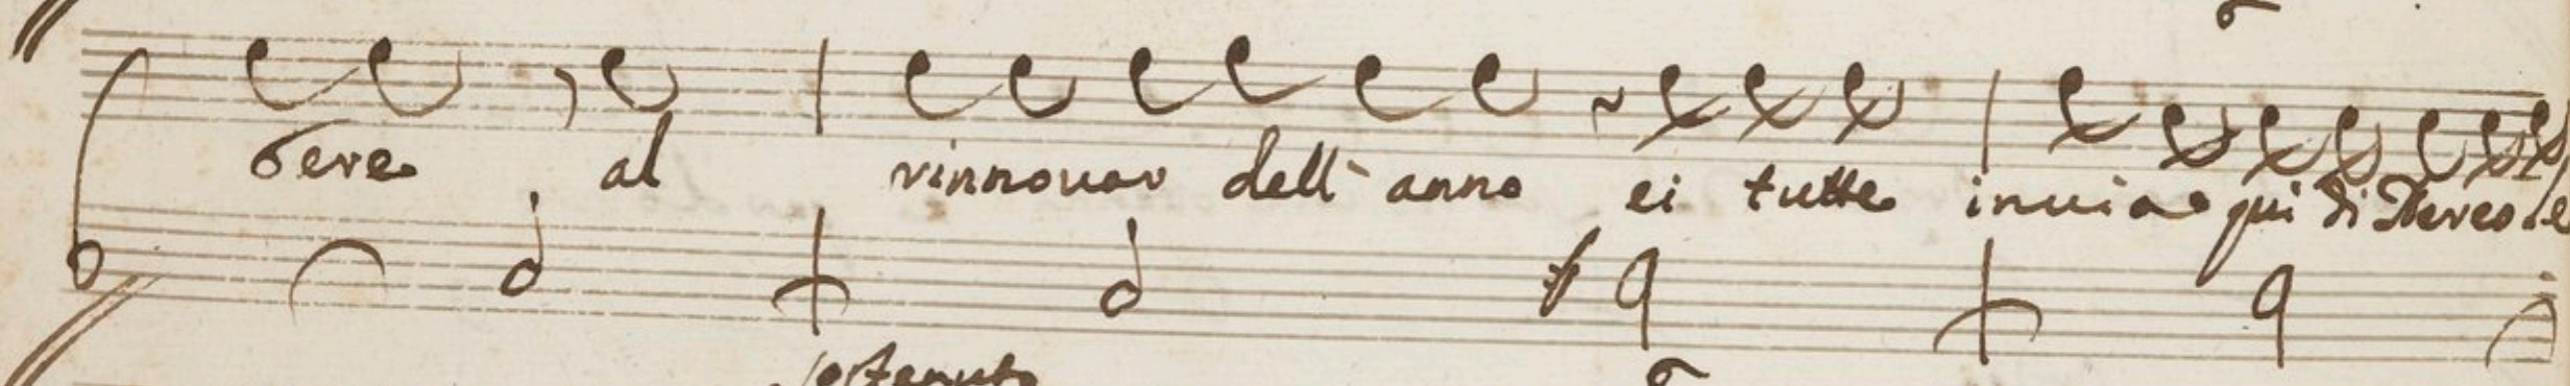 bere al rinnouar dell' anno ei tutte inuia qui di Nereo le
sostenuto